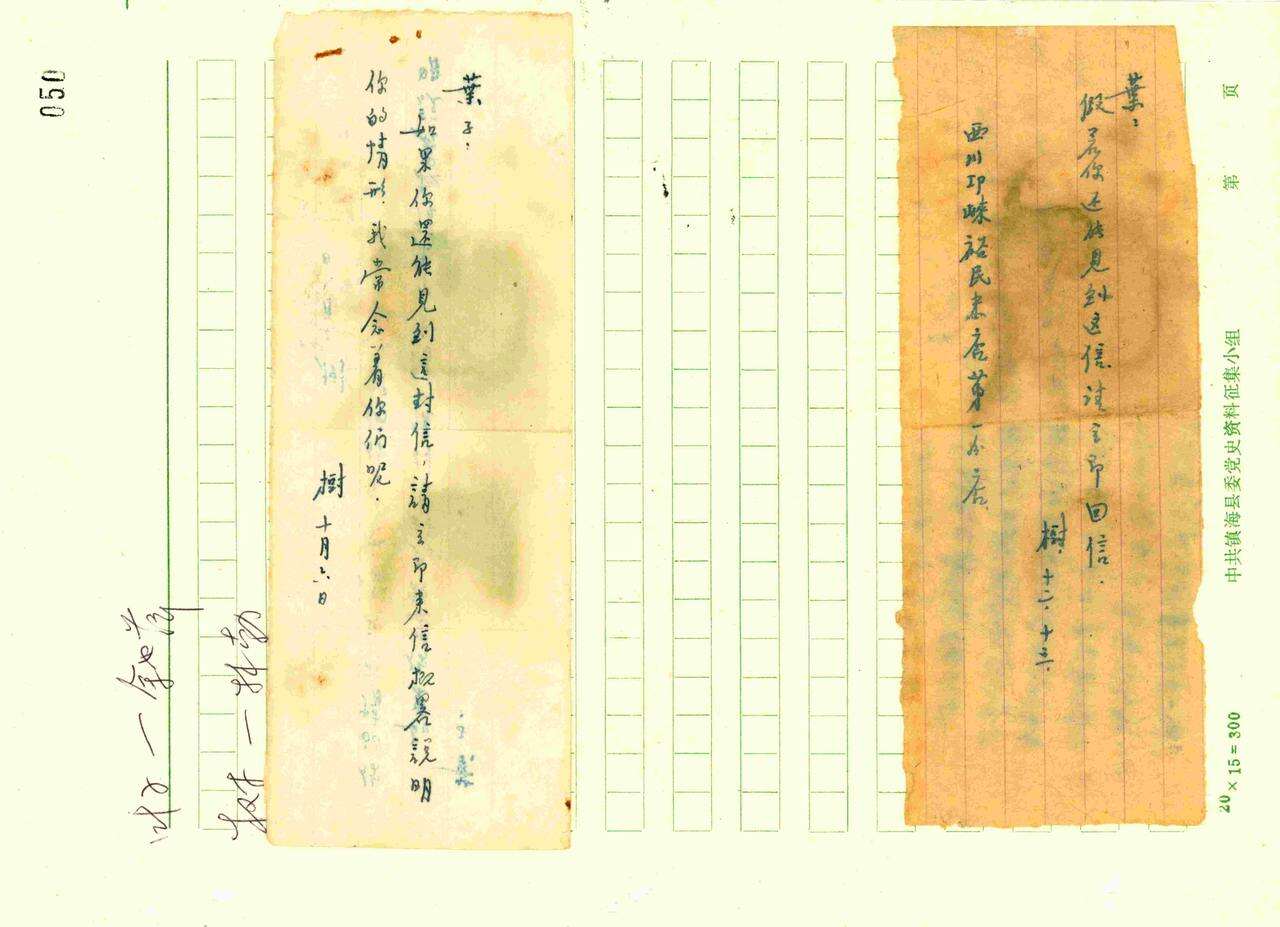 葉:
假若你还能見到这信請立即回信.
樹. 十二.十六.
西川邛崍裕民末店第一分店
葉子:
如果你還能見到這封信,請立即来信概畧說明
你的情形.我常念着你们呢.
樹 十月六日
050
第 页
中共镇海县委党史资料征集小组
20×15=300